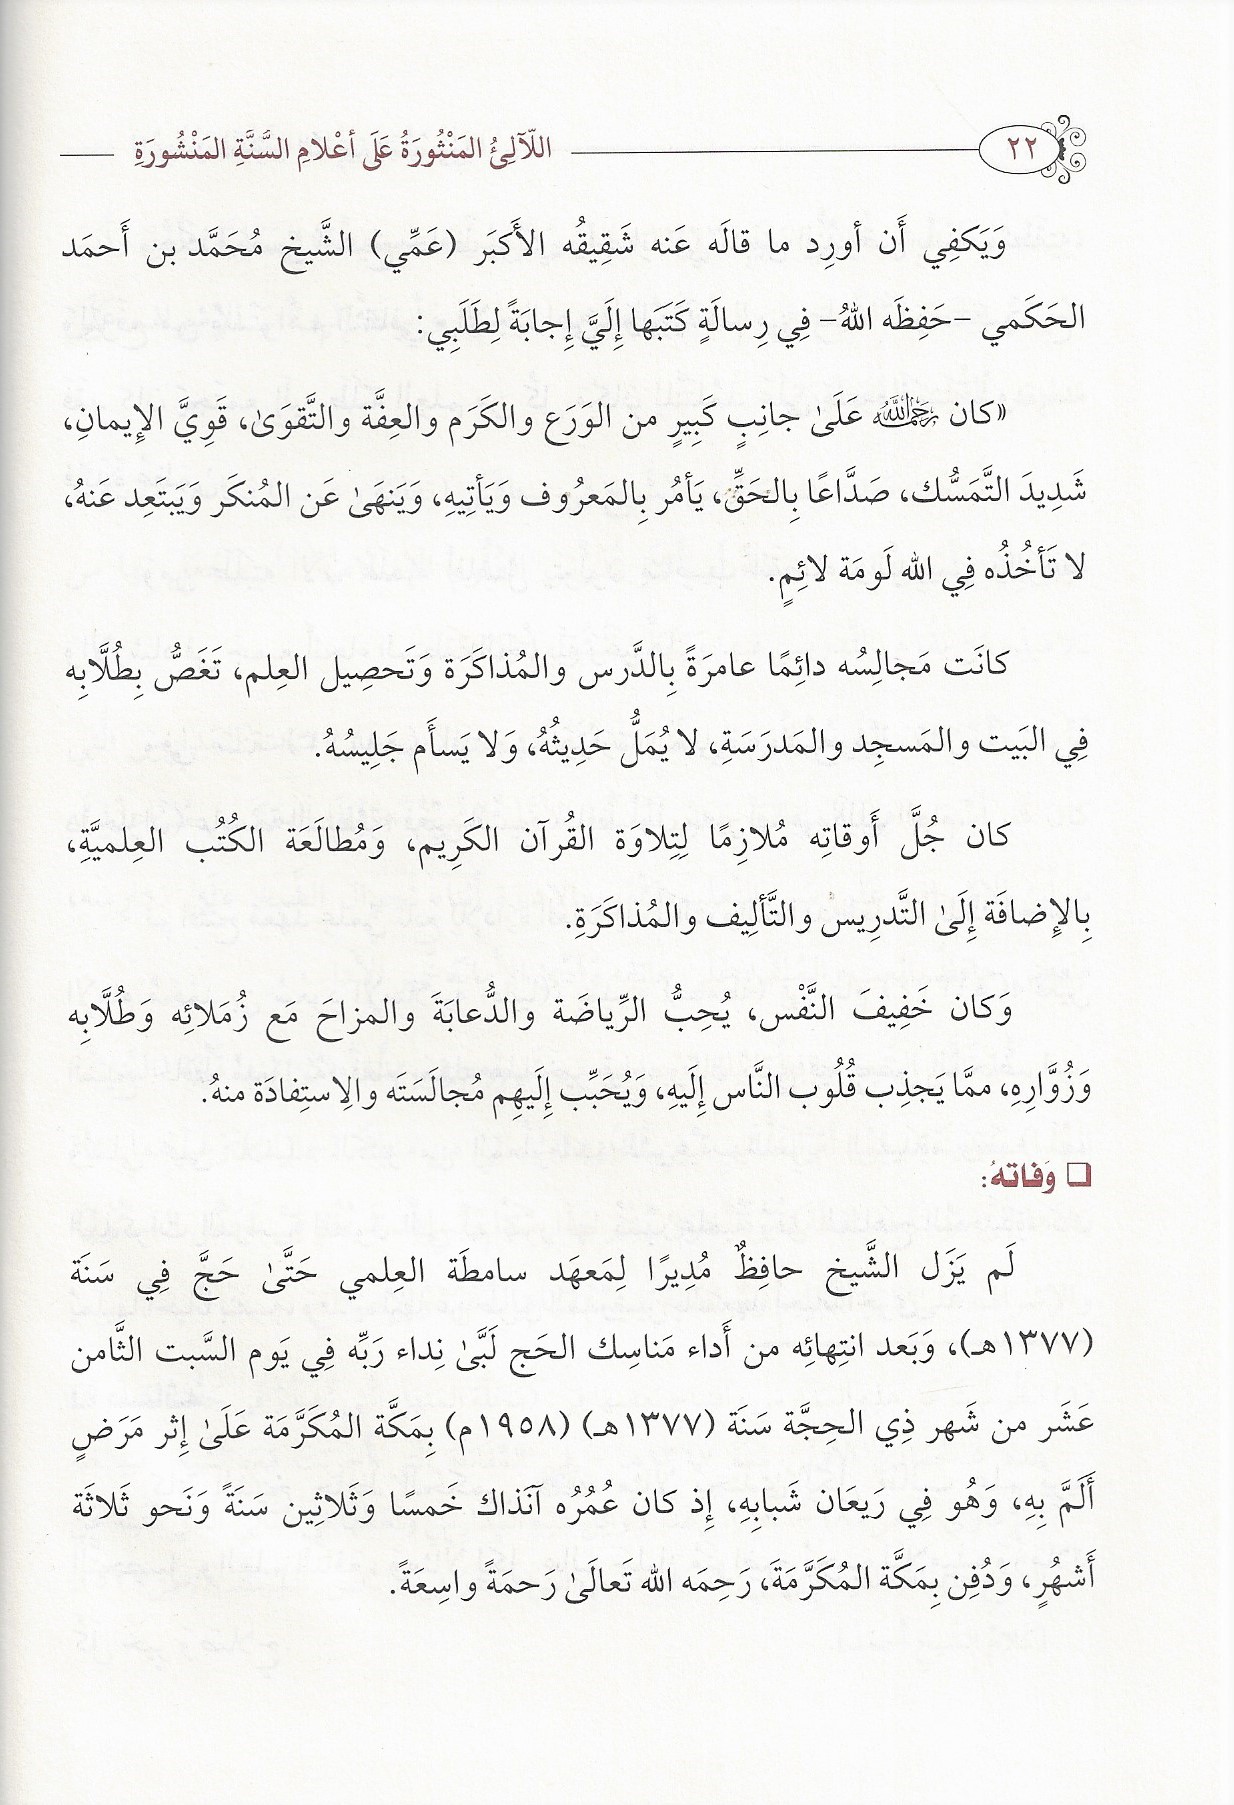 ٢٢ اللّآلِئُ المَنْثُورَةُ عَلَى أَعْلَامِ السَّنَّةِ المَنْشُورَةِ
وَيَكفِي أَن أورِد ما قالَه عَنه شَقِيقُه الأَكبَر (عَمِّي) الشَّيخ مُحَمَّد بن أَحمَد
الحَكَمي -حَفِظَه اللهُ- فِي رِسالَةٍ كَتَبَها إِلَيَّ إِجابَةً لِطَلَبِي:
«كان رَحِمَهُ اللهُ عَلَىٰ جانِبٍ كَبِيرٍ من الوَرَع والكَرَم والعِفَّة والتَّقوَىٰ، قَوِيَّ الإِيمانِ،
شَدِيدَ التَّمَسُّك، صَدَّاعًا بِالحَقِّ، يَأمُر بِالمَعرُوف وَيَأتِيهِ، وَيَنهَىٰ عَن المُنكَر وَيَبتَعِد عَنهُ،
لا تَأخُذُه فِي الله لَومَة لائِمٍ.
كانَت مَجالِسُه دائِمًا عامرَةً بِالدَّرس والمُذاكَرَة وَتَحصِيل العِلم، تَغَصُّ بِطُلَّابِه
فِي البَيت والمَسجِد والمَدرَسَةِ، لا يُمَلُّ حَدِيثُهُ، وَلا يَسأَم جَلِيسُهُ.
كان جُلَّ أَوقاتِه مُلازِمًا لِتِلاوَة القُرآن الكَرِيم، وَمُطالَعَة الكُتُب العِلميَّةِ،
بِالإِضافَة إِلَىٰ التَّدرِيس والتَّألِيف والمُذاكَرَةِ.
وَكان خَفِيفَ النَّفْس، يُحِبُّ الرِّياضَة والدُّعابَةَ والمزاحَ مَع زُمَلائِه وَطُلَّابِه
وَزُوَّارِهِ، ممَّا يَجذِب قُلُوب النَّاس إِلَيهِ، وَيُحَبِّب إِلَيهِم مُجالَسَتَه والِاستِفادَة منهُ.
❏ وَفاتهُ:
لَم يَزَل الشَّيخ حافِظٌ مُدِيرًا لِمَعهَد سامطَة العِلمي حَتَّىٰ حَجَّ فِي سَنَة
(١٣٧٧هـ)، وَبَعد انتِهائِه من أَداء مَناسِك الحَج لَبَّىٰ نِداء رَبِّه فِي يَوم السَّبت الثَّامن
عَشَر من شَهر ذِي الحِجَّة سَنَة (١٣٧٧هـ) (١٩٥٨م) بِمَكَّة المُكَرَّمَة عَلَىٰ إِثر مَرَضٍ
أَلَمَّ بِهِ، وَهُو فِي رَيعَان شَبابِهِ، إِذ كان عُمُرُه آنَذاك خَمسًا وَثَلاثِين سَنَةً وَنَحو ثَلاثَة
أَشهُرٍ، وَدُفِن بِمَكَّة المُكَرَّمَةَ، رَحِمَه الله تَعالَىٰ رَحمَةً واسِعَةً.